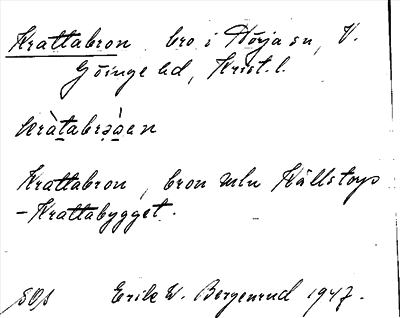 Krattabron, bro i Hörja sn, V.
Göinge hd, Krist. l.
Krattabron, bron mln Källstorp
-Krattabygget.
Erik W. Bergenrud 1947.